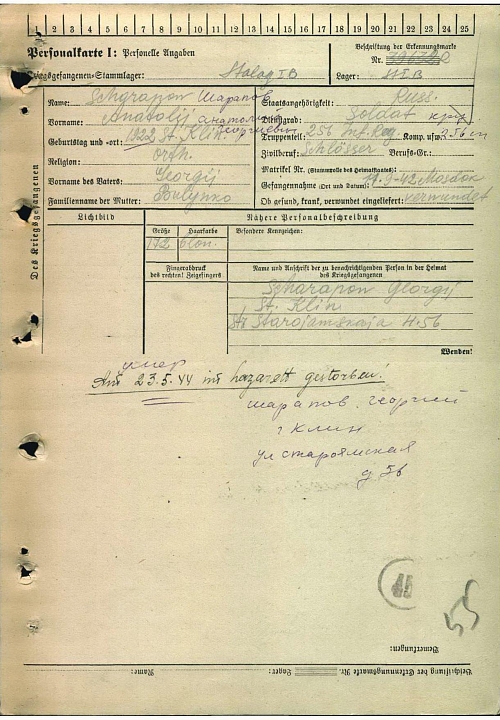 1 2 3 4 5 6 7 8 9 10 11 12 13 14 15 16 17 18 19 20 21 22 23 24 25
Personalkarte I: Personelle Angaben
Beschriftung der Erkennungsmarke
Nr.
Kriegsgefangenen-Stammlager: Stalag IB
Lager: St IB
Des Kriegsgefangenen
Name: Schgrapow Шарапов
Staatsangehörigkeit: Russ.
Vorname: Anatolij Анатолий Георгиевич
Dienstgrad: Soldat кр-ц
Geburtstag und -ort: 1922 St. Klin
Truppenteil: 256 Inf. Reg. Komp. usw.: 256 сп
Religion: Orth.
Zivilberuf: Schlösser Berufs-Gr.:
Matrikel Nr. (Stammrolle des Heimatstaates):
Vorname des Vaters: Georgij
Gefangennahme (Ort und Datum): 9-42 Mosdok
Familienname der Mutter:
Ob gesund, krank, verwundet eingeliefert: verwundet
Lichtbild
Nähere Personalbeschreibung
Größe Haarfarbe Besondere Kennzeichen:
172 blon.
Fingerabdruck
des rechten! Zeigefingers
Name und Anschrift der zu benachrichtigenden Person in der Heimat
des Kriegsgefangenen
Scharapow Georgij
St. Klin
Str Starojamskaja H. 56
Wenden!
умер
Am 23.5.44 im Lazarett gestorben!
Шарапов Георгий
г Клин
ул Староямская
д 56
55
Bemerkungen:
Beschriftung der Erkennungsmarke Nr. Lager: Name: